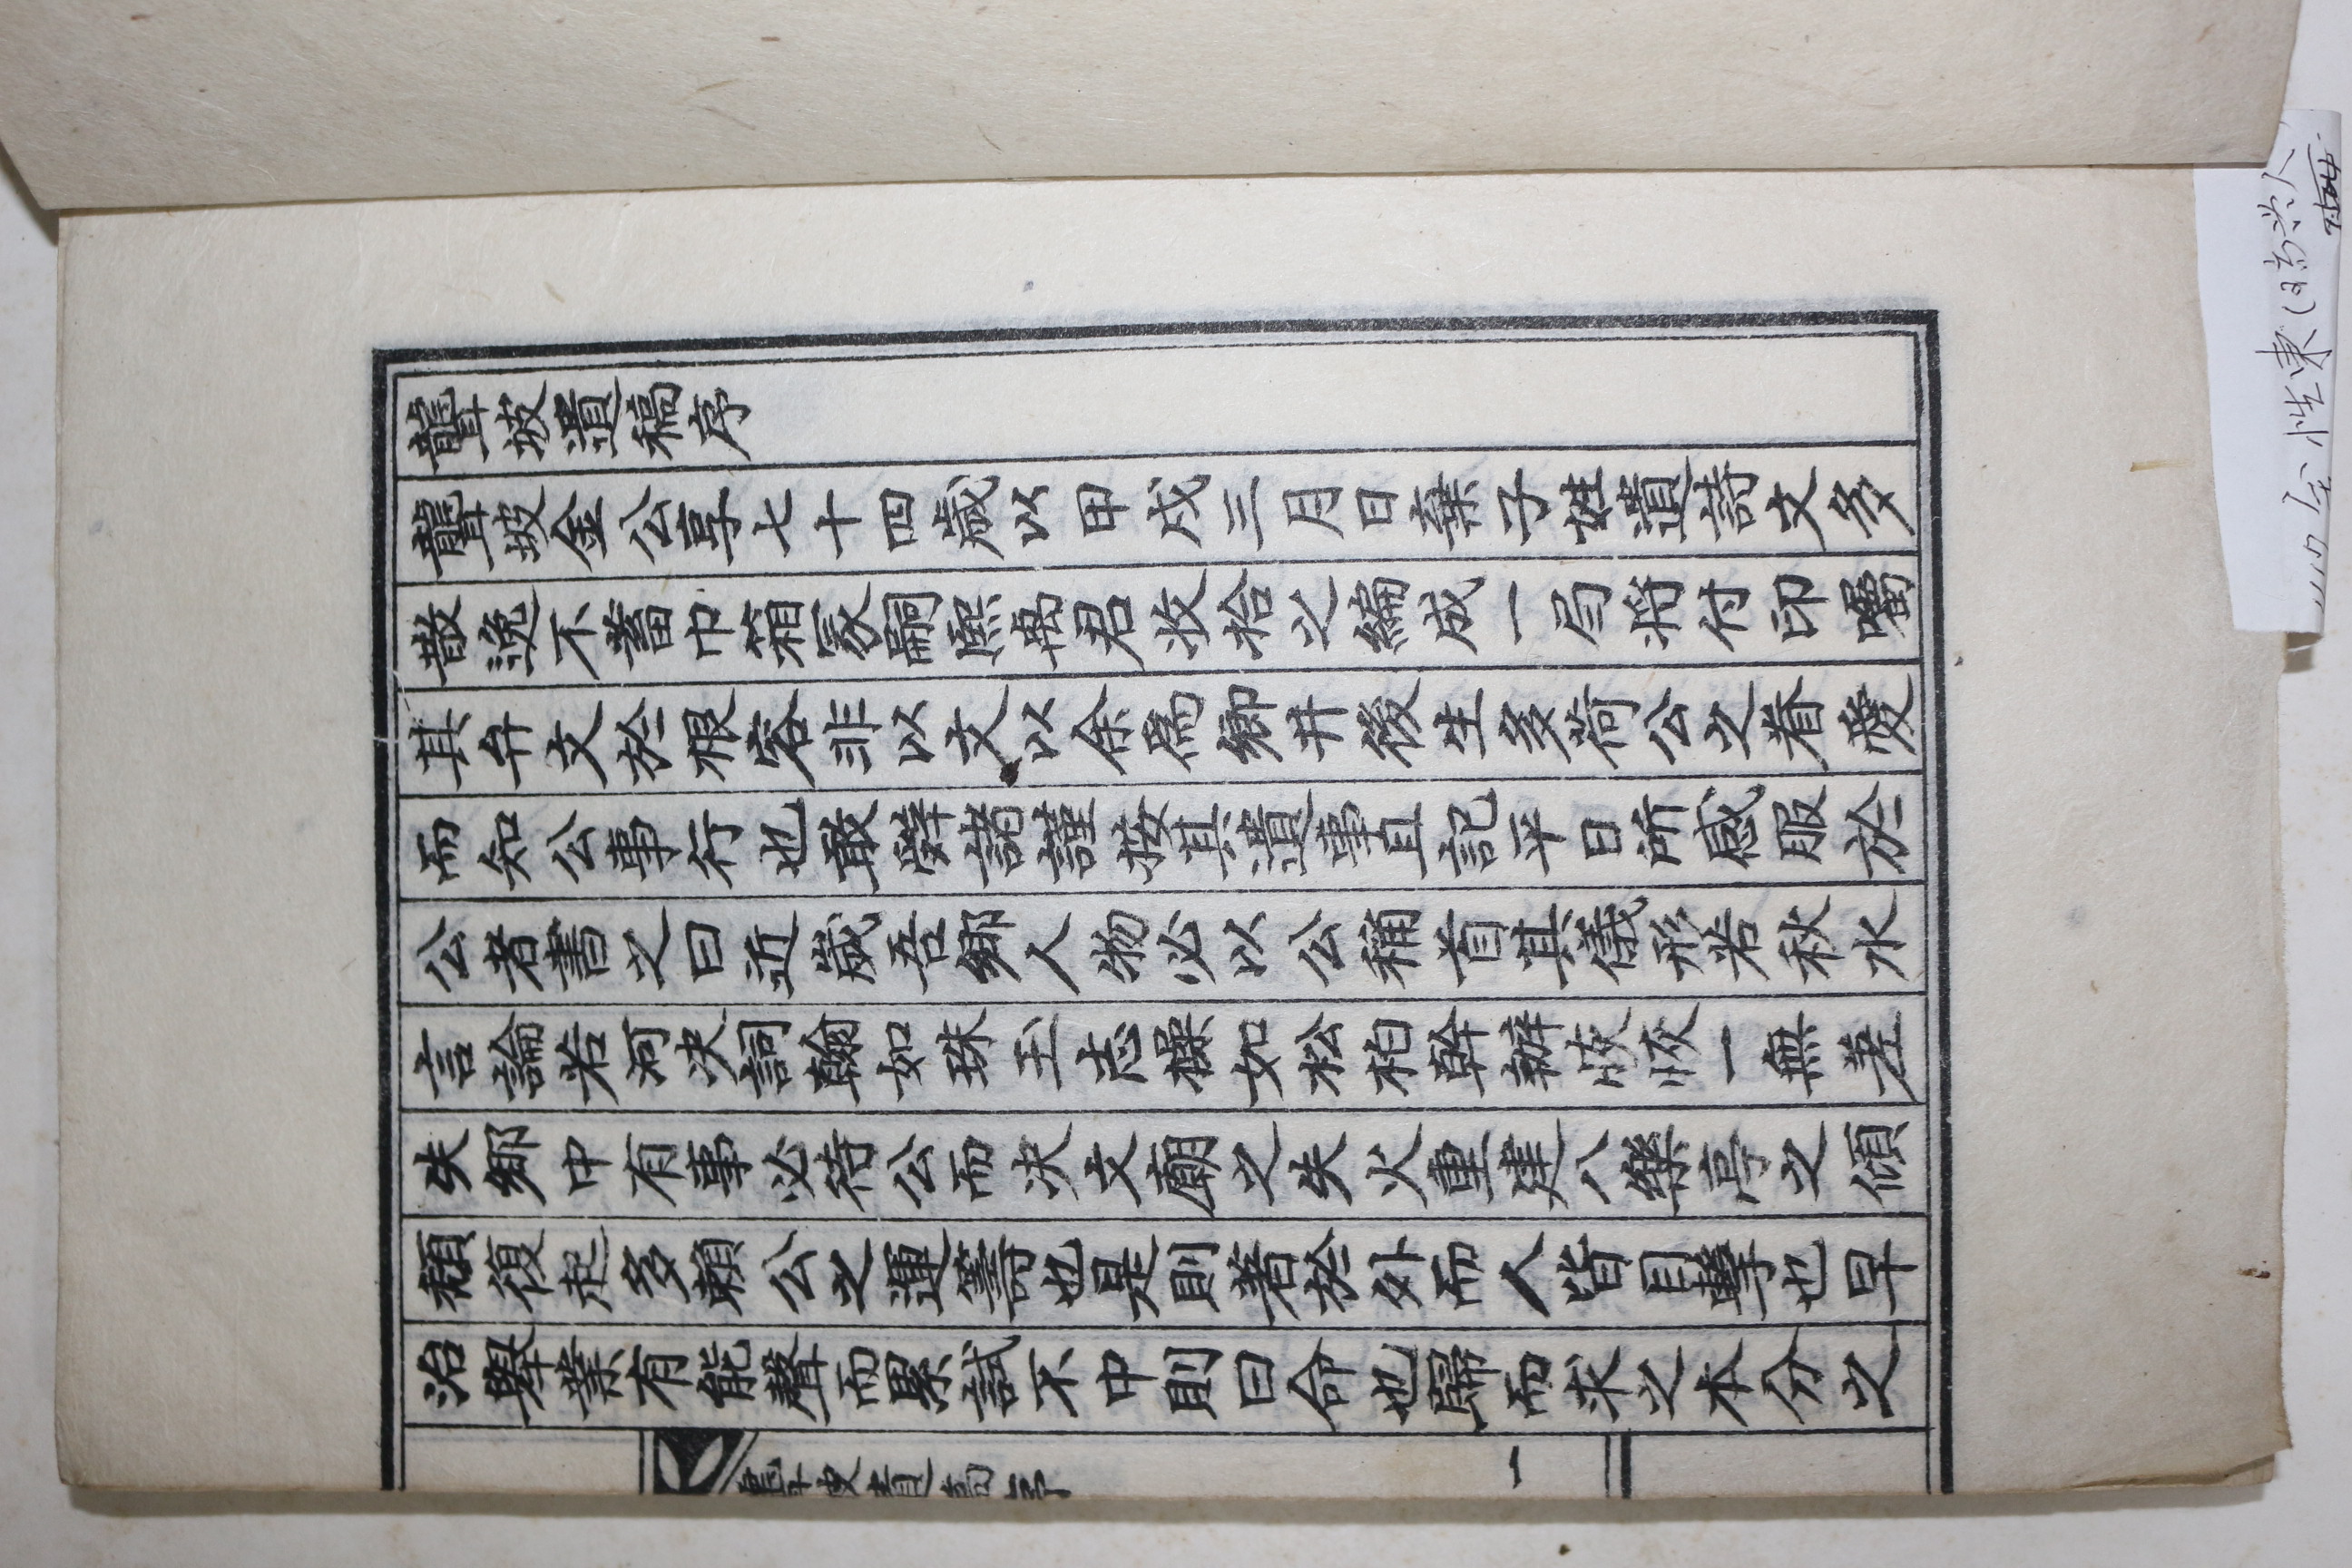 聾坡遺稿序
聾坡金公享七十四歲以甲戌三月日棄子姓遺詩文多
散逸不蓄巾箱冢嗣熙禹君收拾之編成一局将付印囑
其弁文於根容非以文以余爲鄉井後生多荷公之眷愛
而知公事行也敢辭諸謹按其遺事且記平日所感服於
公者書之曰近歲吾鄉人物必以公稱首其儀形若秋水
言論若河决詞翰如珠玉志操如松柏幹辦恢恢一無差
失鄉中有事必待公而决文廟之失火重建八樂亭之傾
頹復起多賴公之運籌也是則著於外而人皆目擊也早
治舉業有能聲而累試不中則曰命也歸而求之本分之
聾坡遺稿序
一
金性東(高兴人)